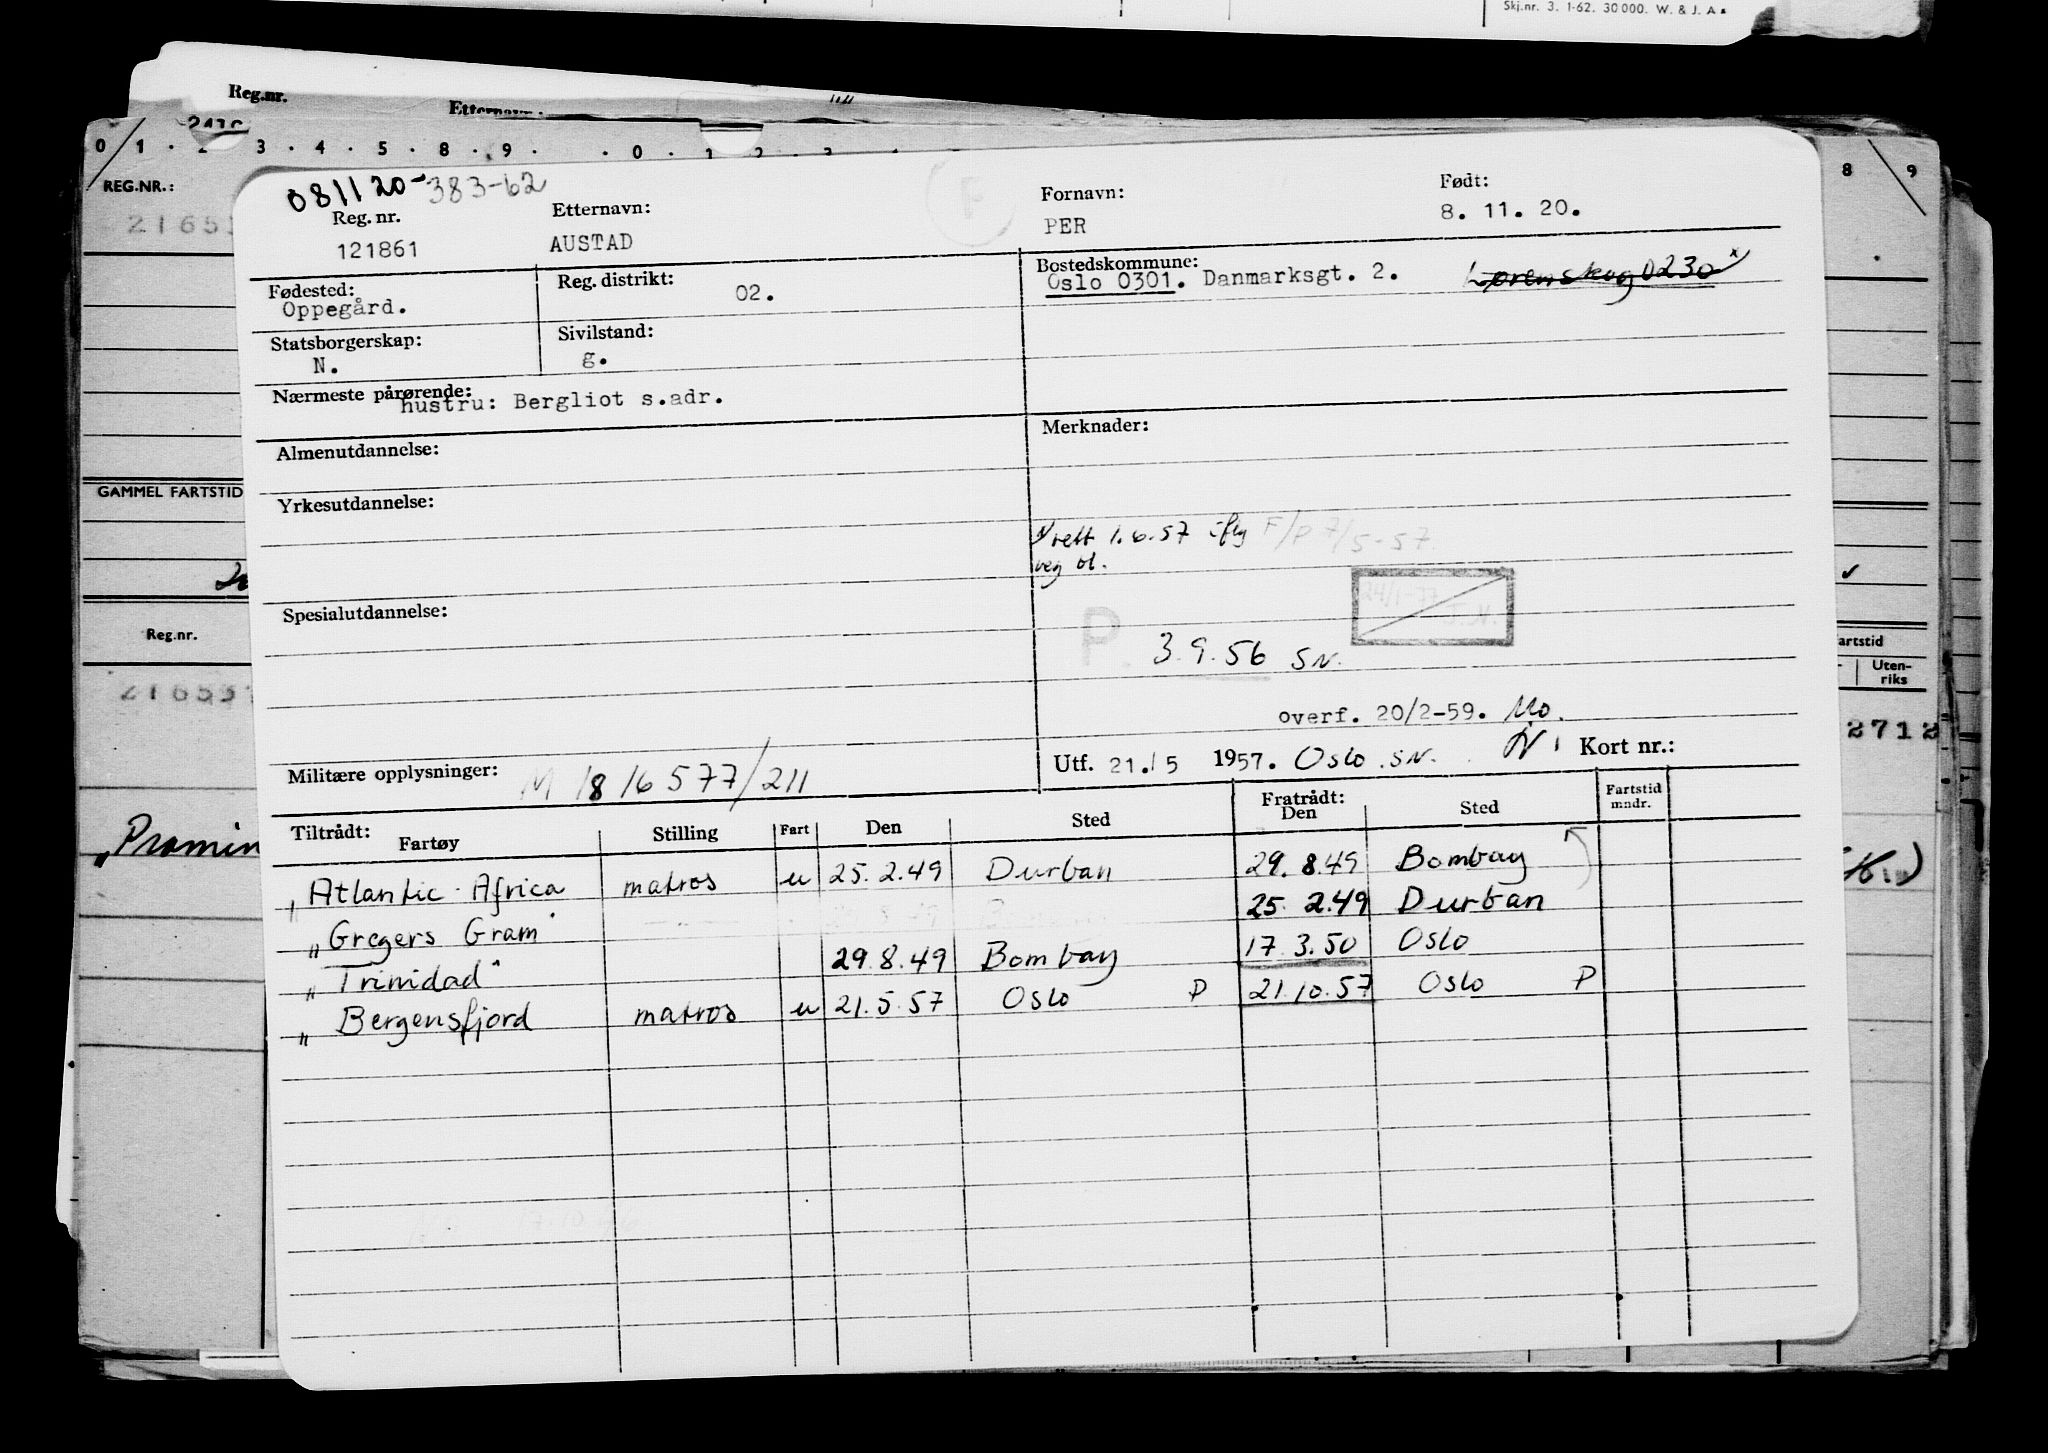 Skj.nr. 3. 1-62. 30000. W. & J. A.
Reg.nr.
Etternavn:
0 1 . 2 . 3 . 4 . 5 . 8 . 9 . . 0 . 1 . 2 . 3 . 4
8 9
REG.NR.:
21653
081120-383-62
Reg. nr. Etternavn: Fornavn: Født:
121861 AUSTAD PER 8. 11. 20.
Fødested: Reg. distrikt: Bostedskommune:
Oppegård. 02. Oslo 0301. Danmarksgt. 2. Lørenskog 0230 x
Statsborgerskap: Sivilstand:
N. g.
Nærmeste pårørende:
hustru: Bergliot s.adr.
Almenutdannelse: Merknader:
GAMMEL FARTSTID
Yrkesutdannelse:
rett 1.6.57 iflg F/P 7/5-57.
veg bl.
24/1-77 J.N.
Spesialutdannelse:
P. 3.9.56 SN.
Reg.nr.
artstid
Uten-
riks
21653
2712
overf. 20/2-59. Mo.
Militære opplysninger: M 1816577/211
Utf. 21.15 1957. Oslo SN. N. Kort nr.:
Tiltrådt: Fartøy Stilling Fart Den Sted Fratrådt: Den Sted Fartstid mndr.
„Promin
K.)
„Atlantic Africa matros u 25.2.49 Durban 29.8.49 Bombay
„Gregers Gram" 25.2.49 Durban
„Trinidad" 29.8.49 Bombay 17.3.50 Oslo
„Bergensfjord matros u 21.5.57 Oslo P 21.10.57 Oslo P